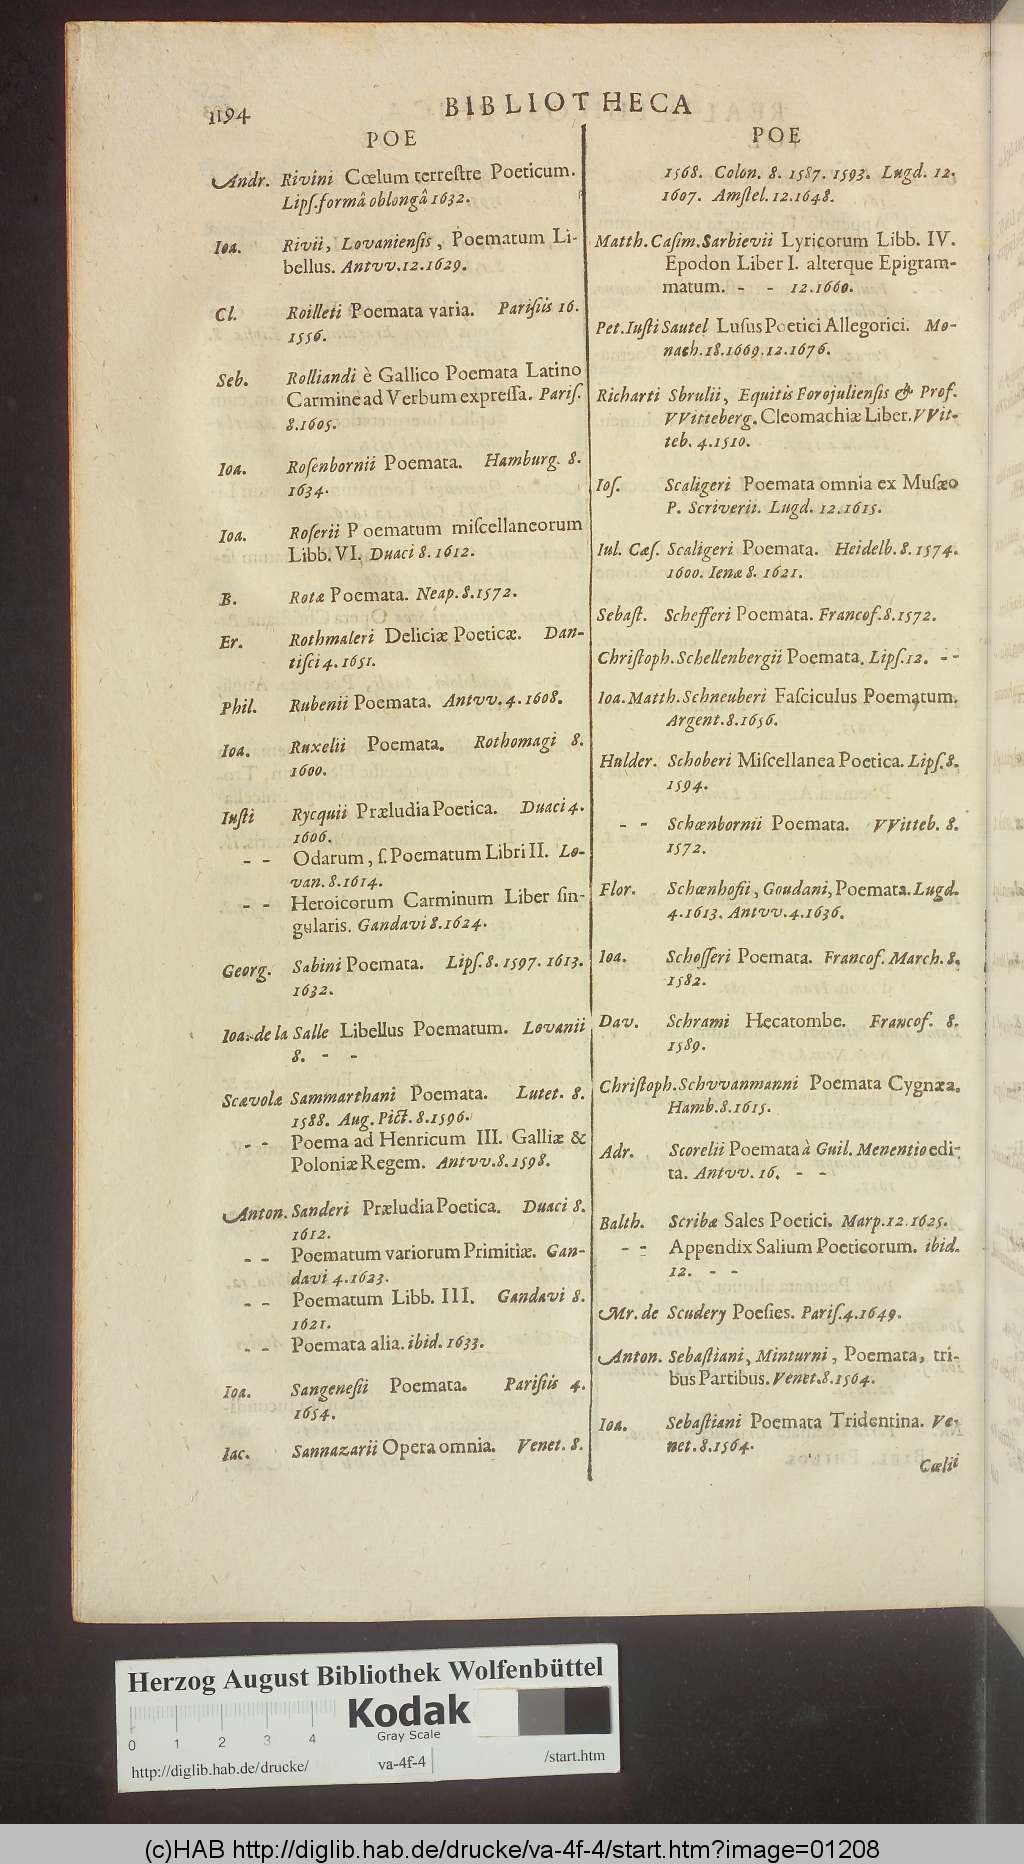 1194
BIBLIOTHECA
POE
Andr. Rivini Cœlum terreſtre Poeticum.
Lipſ. formâ oblongâ 1632.
Ioa. Rivii, Lovanienſis, Poematum Li-
bellus. Antvv. 12. 1629.
Cl. Roilleti Poemata varia. Pariſiis 16.
1556.
Seb. Rolliandi è Gallico Poemata Latino
Carmine ad Verbum expreſſa. Pariſ.
8. 1605.
Ioa. Roſenbornii Poemata. Hamburg. 8.
1634.
Ioa. Roſerii Poematum miſcellaneorum
Libb. VI. Duaci 8. 1612.
B. Rotæ Poemata. Neap. 8. 1572.
Er. Rothmaleri Deliciæ Poeticæ. Dan-
tiſci 4. 1651.
Phil. Rubenii Poemata. Antvv. 4. 1608.
Ioa. Ruxelii Poemata. Rothomagi 8.
1600.
Iuſti Rycquii Præludia Poetica. Duaci 4.
1606.
- - Odarum, ſ. Poematum Libri II. Lo-
van. 8. 1614.
- - Heroicorum Carminum Liber ſin-
gularis. Gandavi 8. 1624.
Georg. Sabini Poemata. Lipſ. 8. 1597. 1613.
1632.
Ioa. de la Salle Libellus Poematum. Lovanii
8. - -
Scævolæ Sammarthani Poemata. Lutet. 8.
1588. Aug. Pict. 8. 1596.
- - Poema ad Henricum III. Galliæ &
Poloniæ Regem. Antvv. 8. 1598.
Anton. Sanderi Præludia Poetica. Duaci 8.
1612.
- - Poematum variorum Primitiæ. Gan-
davi 4. 1623.
- - Poematum Libb. III. Gandavi 8.
1621.
- - Poemata alia. ibid. 1633.
Ioa. Sangeneſii Poemata. Pariſiis 4.
1654.
Iac. Sannazarii Opera omnia. Venet. 8.
POE
1568. Colon. 8. 1587. 1593. Lugd. 12.
1607. Amſtel. 12. 1648.
Matth. Caſim. Sarbievii Lyricorum Libb. IV.
Epodon Liber I. alterque Epigram-
matum. - - 12. 1660.
Pet. Iuſti Sautel Luſus Poetici Allegorici. Mo-
nach. 18. 1669. 12. 1676.
Richarti Sbrulii, Equitis Forojulienſis & Prof.
VVitteberg. Cleomachiæ Liber. VVit-
teb. 4. 1510.
Ioſ. Scaligeri Poemata omnia ex Muſæo
P. Scriverii. Lugd. 12. 1615.
Iul. Cæſ. Scaligeri Poemata. Heidelb. 8. 1574.
1600. Ienæ 8. 1621.
Sebaſt. Schefferi Poemata. Francof. 8. 1572.
Chriſtoph. Schellenbergii Poemata. Lipſ. 12. - -
Ioa. Matth. Schneuberi Faſciculus Poematum.
Argent. 8. 1656.
Hulder. Schoberi Miſcellanea Poetica. Lipſ. 8.
1594.
- - Schœnbornii Poemata. VVitteb. 8.
1572.
Flor. Schœnhofii, Goudani, Poemata. Lugd.
4. 1613. Antvv. 4. 1636.
Ioa. Schoſſeri Poemata. Francof. March. 8.
1582.
Dav. Schrami Hecatombe. Francof. 8.
1589.
Chriſtoph. Schvvanmanni Poemata Cygnæa.
Hamb. 8. 1615.
Adr. Scorelii Poemata à Guil. Menentio edi-
ta. Antvv. 16. - -
Balth. Scribæ Sales Poetici. Marp. 12. 1625.
- - Appendix Salium Poeticorum. ibid.
12. - -
Mr. de Scudery Poeſies. Pariſ. 4. 1649.
Anton. Sebaſtiani, Minturni, Poemata, tri-
bus Partibus. Venet. 8. 1564.
Ioa. Sebaſtiani Poemata Tridentina. Ve-
net. 8. 1564.
Cœlii
Herzog August Bibliothek Wolfenbüttel
Kodak
Gray Scale
0 1 2 3 4
http://diglib.hab.de/drucke/ va-4f-4 /start.htm
(c)HAB http://diglib.hab.de/drucke/va-4f-4/start.htm?image=01208